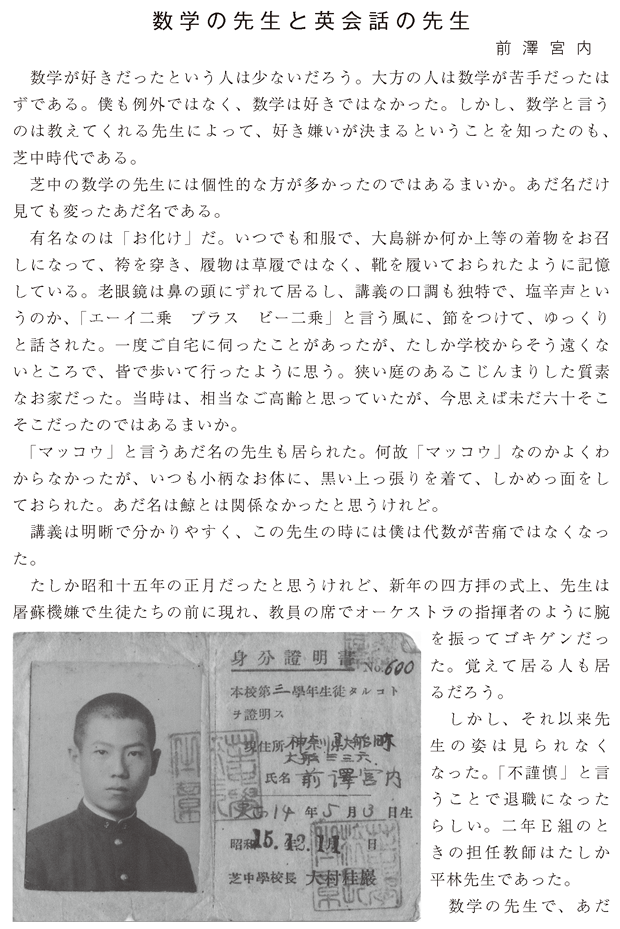 数学の先生と英会話の先生
前澤宮内
数学が好きだったという人は少ないだろう。大方の人は数学が苦手だったは
ずである。僕も例外ではなく、数学は好きではなかった。しかし、数学と言う
のは教えてくれる先生によって、好き嫌いが決まるということを知ったのも、
芝中時代である。
芝中の数学の先生には個性的な方が多かったのではあるまいか。あだ名だけ
見ても変ったあだ名である。
有名なのは「お化け」だ。いつでも和服で、大島絣か何か上等の着物をお召
しになって、袴を穿き、履物は草履ではなく、靴を履いておられたように記憶
している。老眼鏡は鼻の頭にずれて居るし、講義の口調も独特で、塩辛声とい
うのか、「エーイ二乗　プラス　ビー二乗」と言う風に、節をつけて、ゆっくり
と話された。一度ご自宅に伺ったことがあったが、たしか学校からそう遠くな
いところで、皆で歩いて行ったように思う。狭い庭のあるこじんまりした質素
なお家だった。当時は、相当なご高齢と思っていたが、今思えば未だ六十そこ
そこだったのではあるまいか。
「マッコウ」と言うあだ名の先生も居られた。何故「マッコウ」なのかよくわ
からなかったが、いつも小柄なお体に、黒い上っ張りを着て、しかめっ面をし
ておられた。あだ名は鯨とは関係なかったと思うけれど。
講義は明晰で分かりやすく、この先生の時には僕は代数が苦痛ではなくなっ
た。
たしか昭和十五年の正月だったと思うけれど、新年の四方拝の式上、先生は
屠蘇機嫌で生徒たちの前に現れ、教員の席でオーケストラの指揮者のように腕
を振ってゴキゲンだっ
た。覚えて居る人も居
るだろう。
しかし、それ以来先
生の姿は見られなく
なった。「不謹慎」と言
うことで退職になった
らしい。二年Ｅ組のと
きの担任教師はたしか
平林先生であった。
数学の先生で、あだ
身分證明書
No.600
本校第三學年生徒タルコト
ヲ證明ス
現住所 神奈川県大船町
大船三三六
氏名 前澤宮内
14年5月3日生
昭和15.12.11日
芝中學校長 大村桂巖